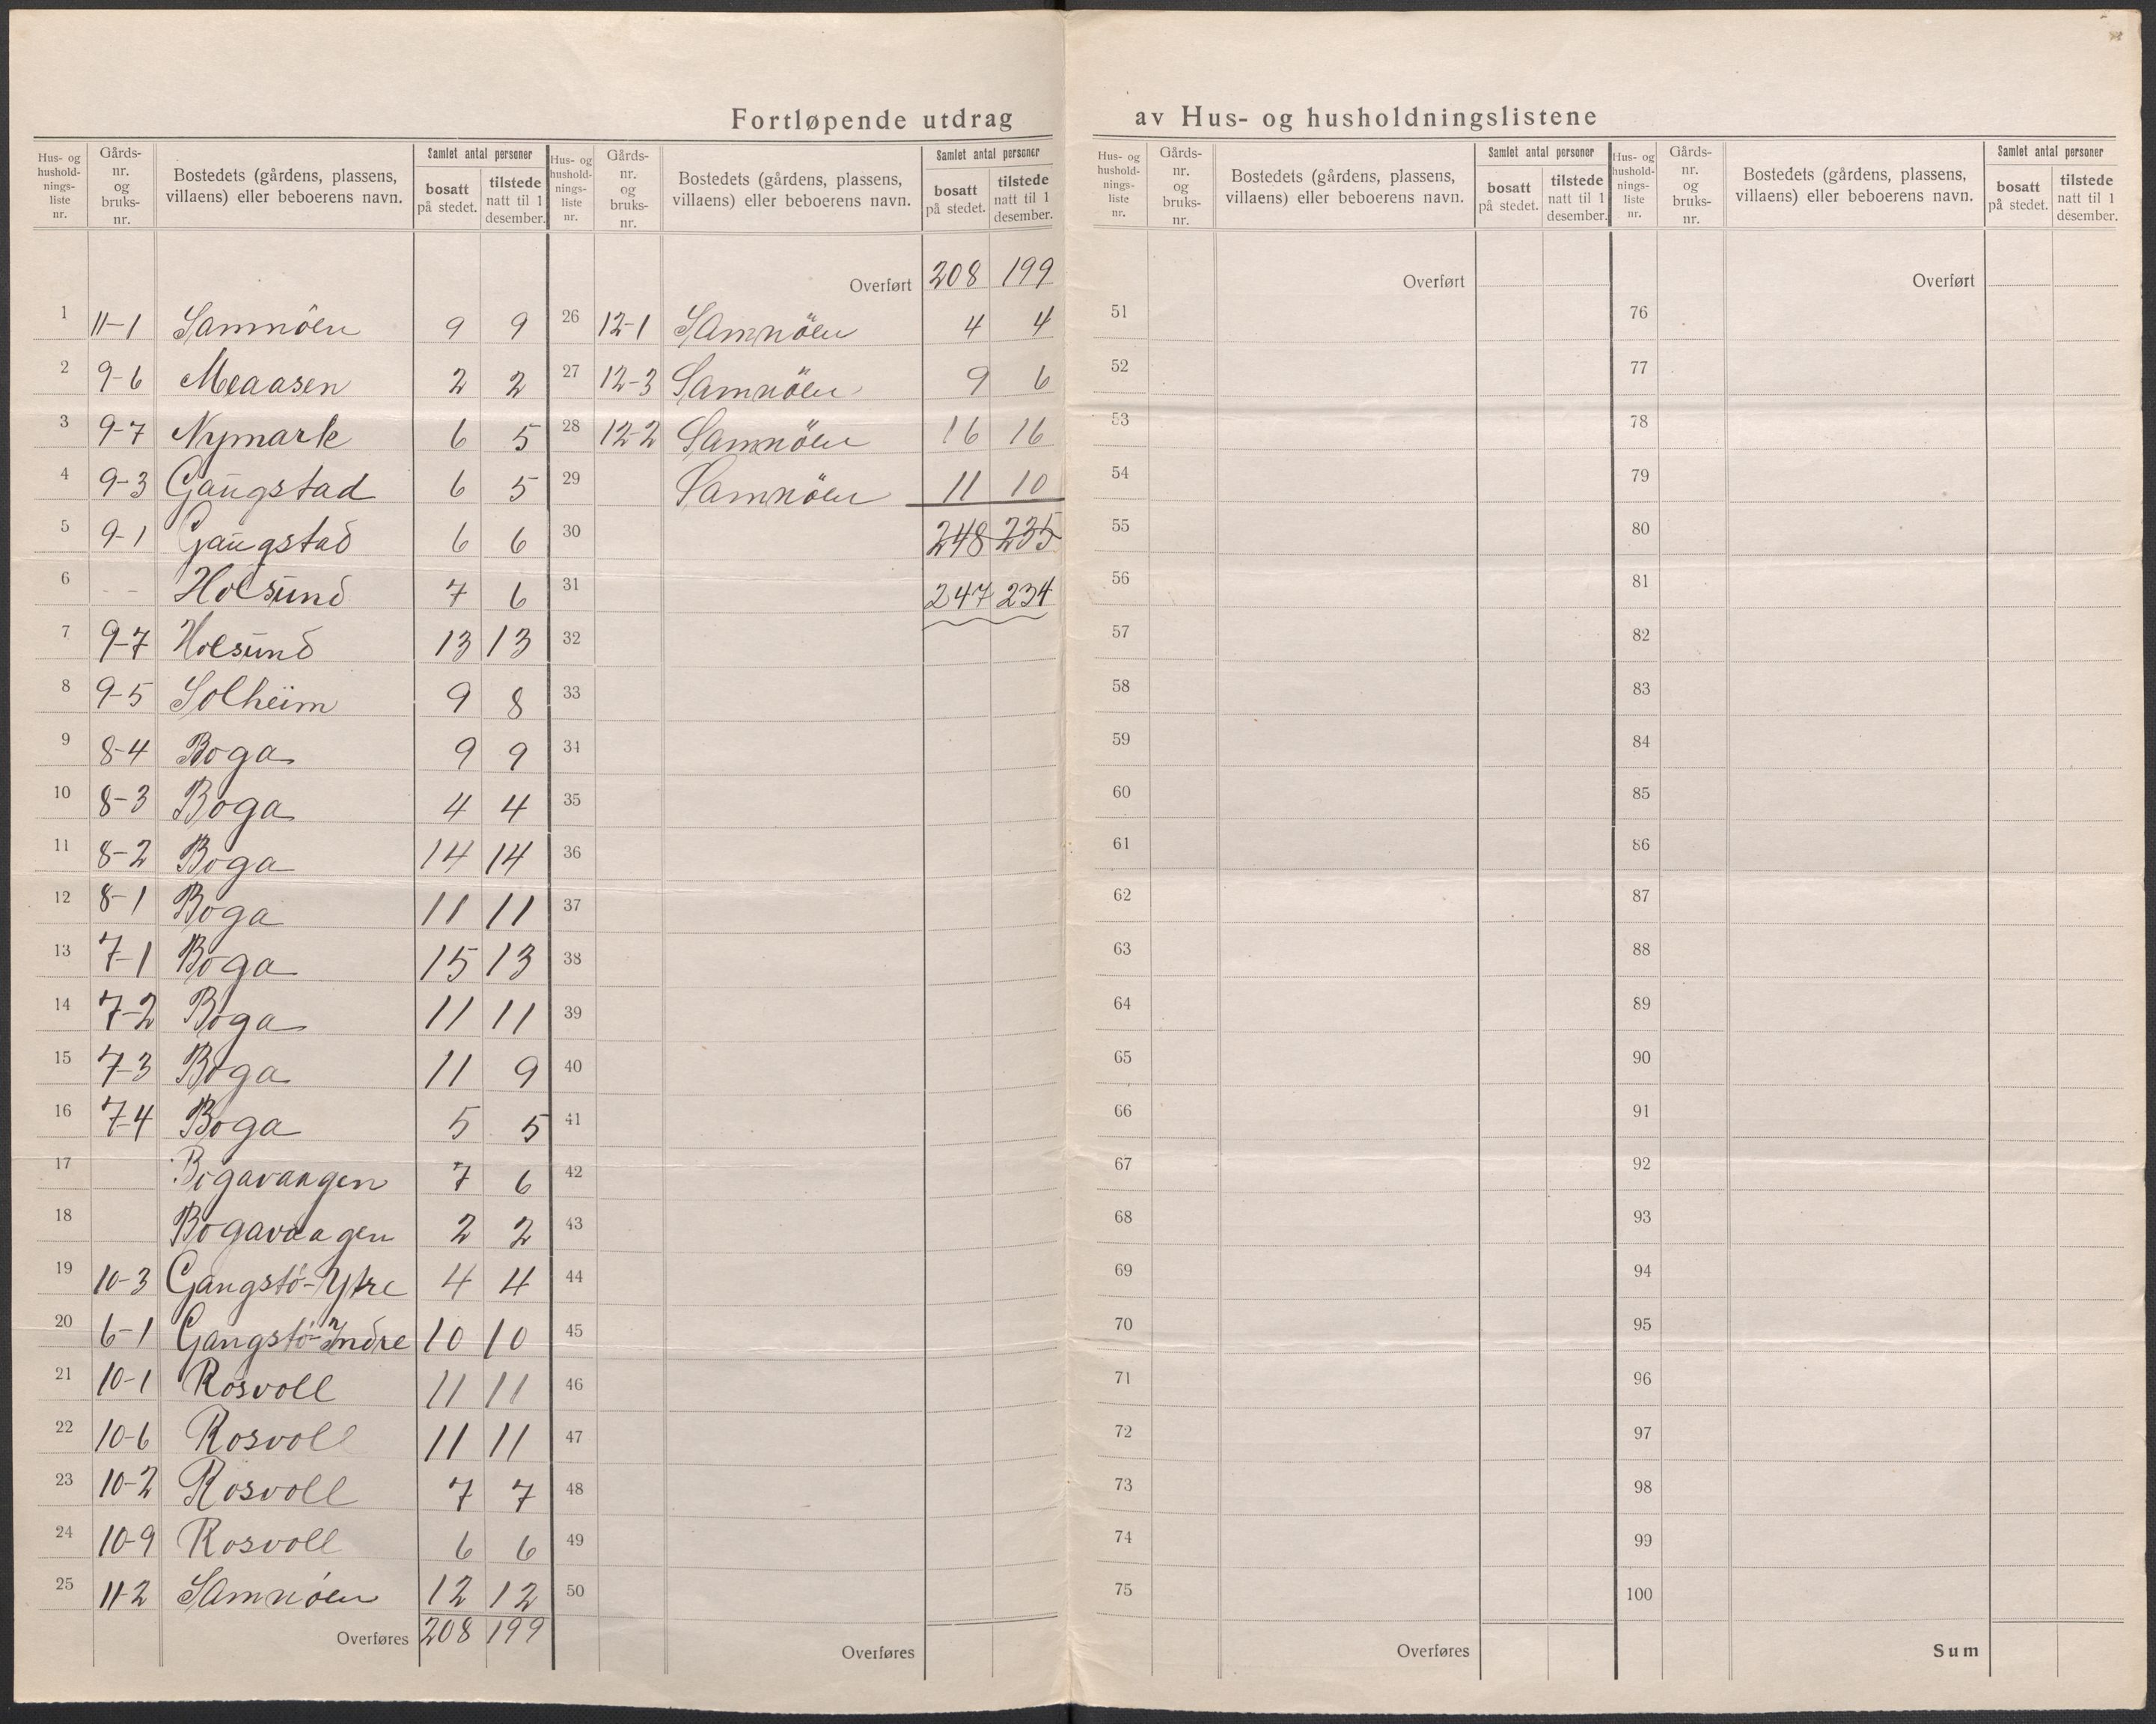 Fortløpende utdrag av Hus- og husholdningslistene
Hus- og hushold-nings-liste nr. | Gårds-nr. og bruks-nr. | Bostedets (gårdens, plassens, villaens) eller beboerens navn. | Samlet antal personer | bosatt på stedet. | tilstede natt til 1 desember.
1 11-1 Samnöen 9 9
2 9-6 Meaasen 2 2
3 9-7 Nymark 6 5
4 9-3 Gangstad 6 5
5 9-1 Gangstad 6 6
6 - - Holsund 7 6
7 9-7 Holsund 13 13
8 9-5 Solheim 9 8
9 8-4 Boga 9 9
10 8-3 Boga 4 4
11 8-2 Boga 14 14
12 8-1 Boga 11 11
13 7-1 Boga 15 13
14 7-2 Boga 11 11
15 7-3 Boga 11 9
16 7-4 Boga 5 5
17 Bogavaagen 7 6
18 Bogavaagen 2 2
19 10-3 Gangstö-Ytre 4 4
20 6-1 Gangstö-Indre 10 10
21 10-1 Rosvoll 11 11
22 10-6 Rosvoll 11 11
23 10-2 Rosvoll 7 7
24 10-9 Rosvoll 6 6
25 11-2 Samnöen 12 12
Overføres 208 199
Hus- og hushold-nings-liste nr. | Gårds-nr. og bruks-nr. | Bostedets (gårdens, plassens, villaens) eller beboerens navn. | Samlet antal personer | bosatt på stedet. | tilstede natt til 1 desember.
Overført 208 199
26 12-1 Samnöen 4 4
27 12-3 Samnöen 9 6
28 12-2 Samnöen 16 16
29 Samnöen 11 10
30 248 235
31 247 234
32
33
34
35
36
37
38
39
40
41
42
43
44
45
46
47
48
49
50
Overføres
Hus- og hushold-nings-liste nr. | Gårds-nr. og bruks-nr. | Bostedets (gårdens, plassens, villaens) eller beboerens navn. | Samlet antal personer | bosatt på stedet. | tilstede natt til 1 desember.
Overført
51
52
53
54
55
56
57
58
59
60
61
62
63
64
65
66
67
68
69
70
71
72
73
74
75
Overføres
Hus- og hushold-nings-liste nr. | Gårds-nr. og bruks-nr. | Bostedets (gårdens, plassens, villaens) eller beboerens navn. | Samlet antal personer | bosatt på stedet. | tilstede natt til 1 desember.
Overført
76
77
78
79
80
81
82
83
84
85
86
87
88
89
90
91
92
93
94
95
96
97
98
99
100
Sum